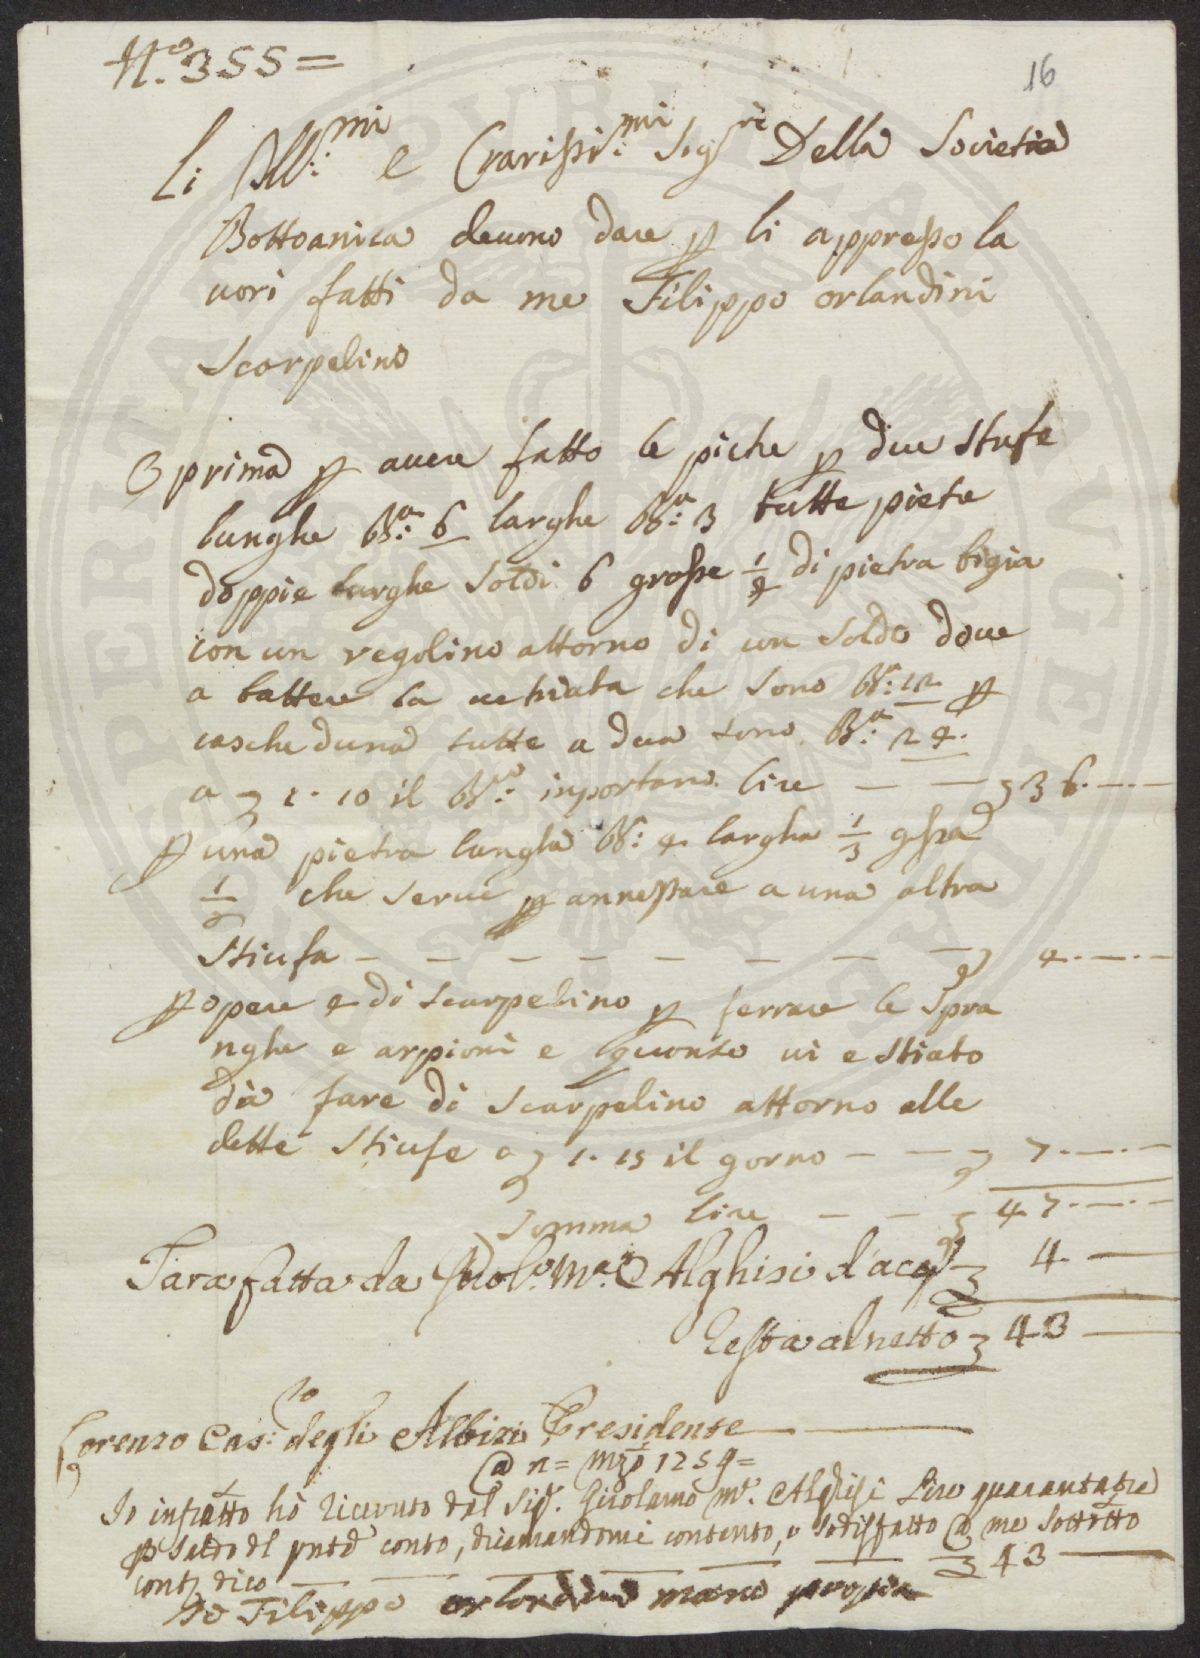 N.o 355 =
16
Li Ill:mi e Clarissi:mi Sigri Della Societia
Bottoanica deuono dare p li appresso la
uori fatti da me Filippo orlandini
Scarpelino
E prima p auere fatto le piche p due Stufe
lunghe b:a 6 larghe b:a 3 tutte piete
doppie larghe soldi 6 grosse 1/4 di pietra bigia
con un regolino attorno di un Soldo doue
a battere la uetriata che sono b:a 12 p
cascheduna tutte a dua sono B:a 24.
a 1. 10 il b:o inportano lire — — 36.—.—
p una pietra lungha b: 4 largha 1/3 gssa
1/2 che serue p annestare a una altra
Stiufa — — — — — — — — 4.—.—
p opere 4 di scarpelino p ferrare le Spra
nghe e arpioni e quonto ui e Stiato
da fare di Scarpelino attorno alle
dette Stiufe a 1. 15 il gorno — — — 7.—.—
Somma lire — — 47.—.—
Tara fatta da Girol.o M.a Alghisi d'acc.o 4. —
Resta al netto 43 —
Lorenzo Cas: degli Albizi Presidente
@ n = 1259 =
Io infratto hò riceuuto dal Sig.r Girolamo M.a Alghisi Lire quarantatre
p saldo del pnte conto, chiamandomi contento, e sodisfatto @ me sottotto
conti dico — — — — — — 43 —
Io Filippo orlandini mano propia